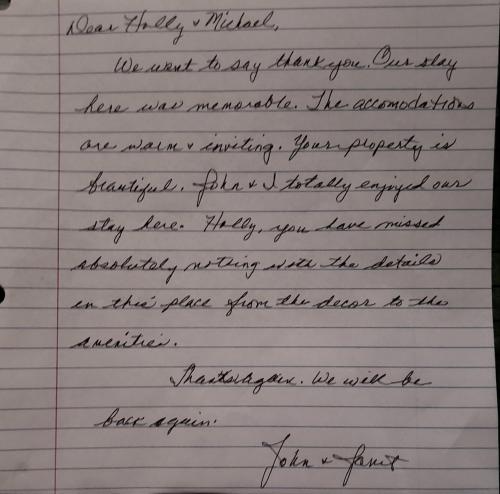 Dear Holly & Michael,
We want to say thank you. Our stay
here was memorable. The accomodations
are warm & inviting. Your property is
beautiful. John & I totally enjoyed our
stay here. Holly, you have missed
absolutely nothing with the details
in this place from the decor to the
amenities.
Thanks again. We will be
back again.
John & Janet